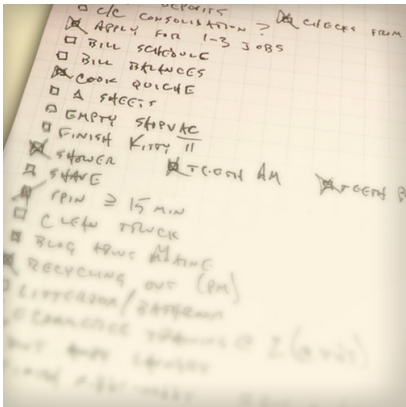 DEPOSITS
C/C CONSOLIDATION? CHECKS FROM
APPLY FOR 1-3 JOBS
BILL SCHEDULE
BILL BALANCES
COOK QUICHE
Δ SHEETS
EMPTY SHOPVAC
FINISH KITTY II
SHOWER TEETH AM TEETH
SHAVE
SPIN ≥ 15 MIN
CLEAN TRUCK
BLOG ABOUT MAINE
RECYCLING OUT (PM)
LITTERBOX/BATHROOM